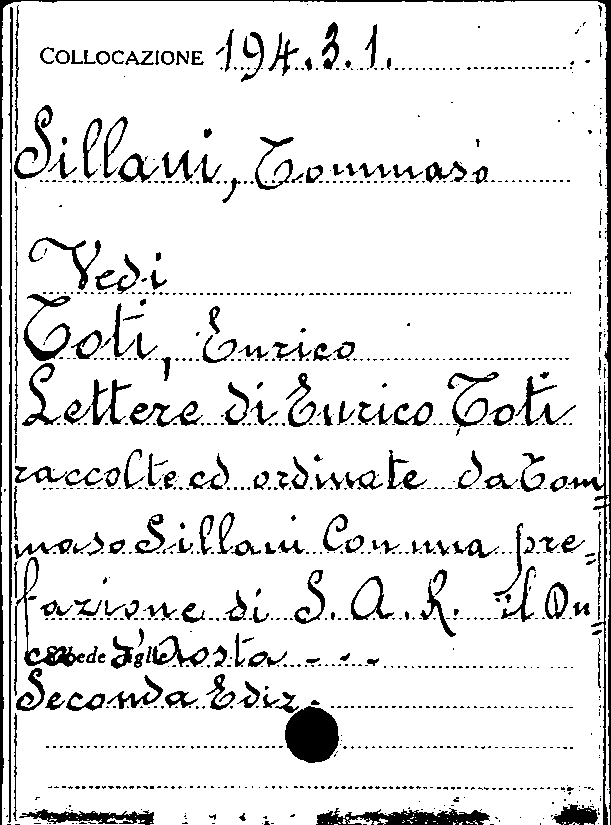 COLLOCAZIONE 194.3.1.
Sillani, Tommaso
Vedi
Toti, Enrico
Lettere di Enrico Toti
raccolte ed ordinate da Tom=
maso Sillani Con una pre=
fazione di S. A. R. il Du=
ca d'Aosta - - -
Seconda Ediz.